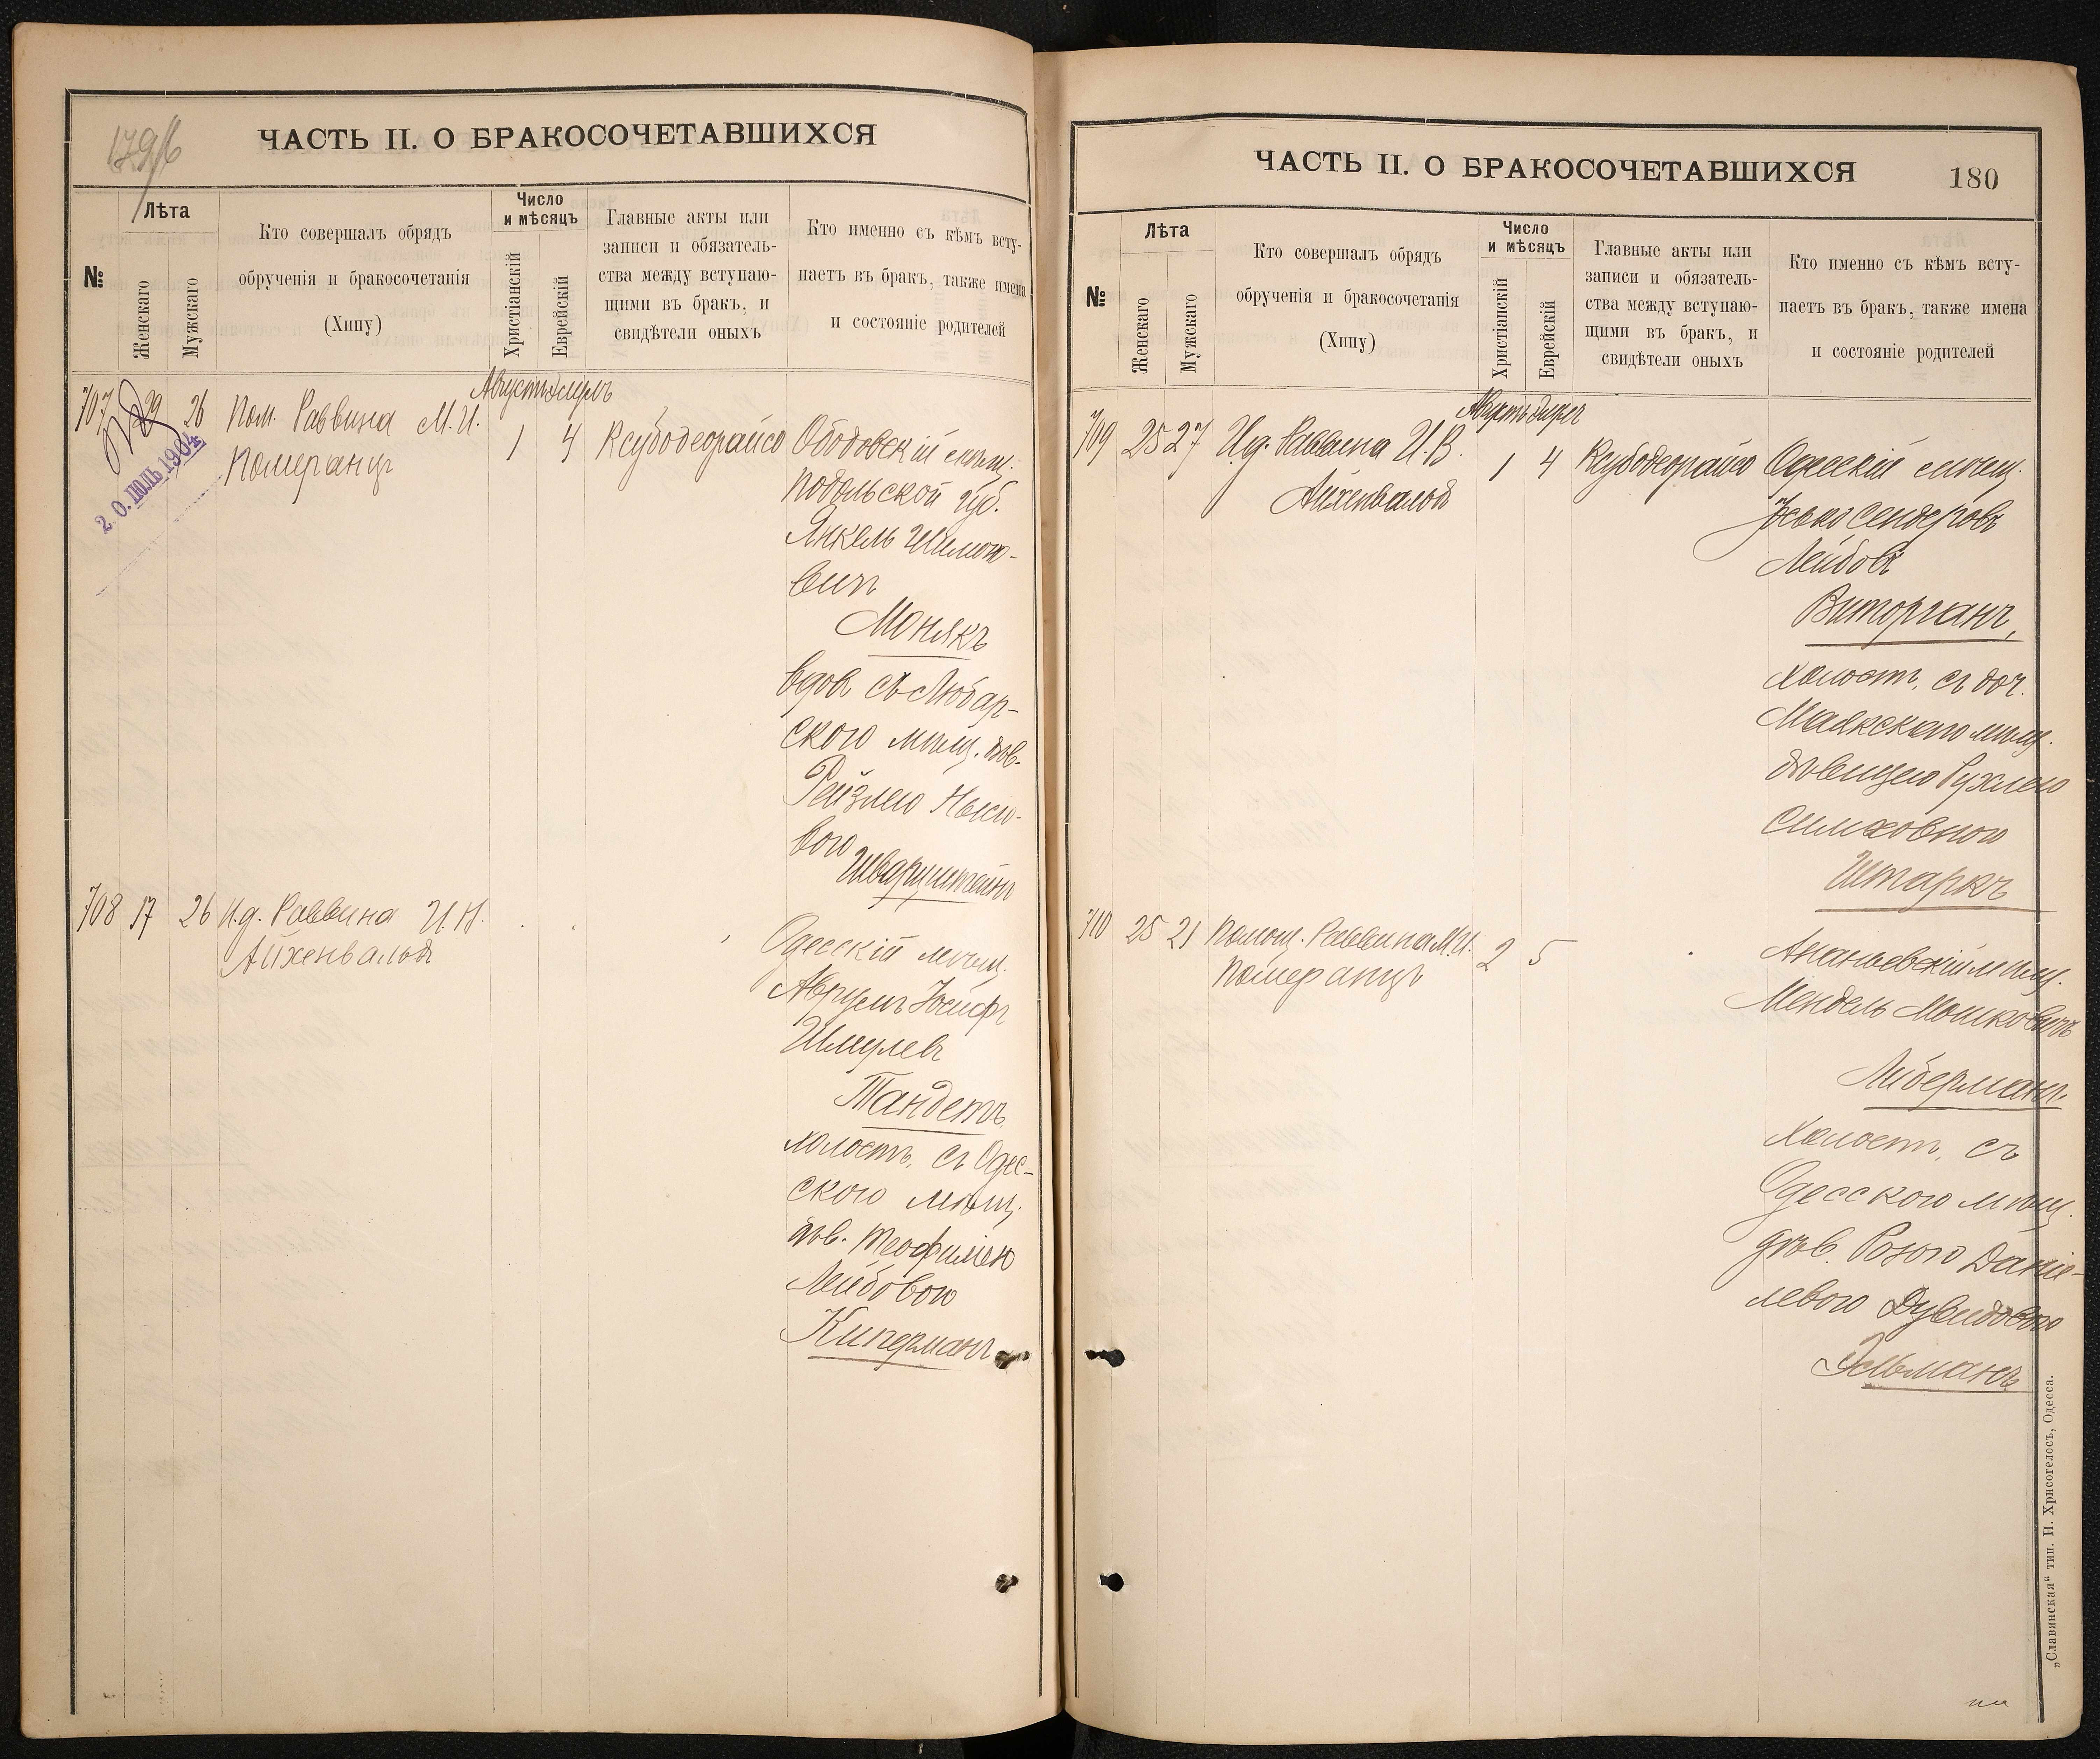 179/б
ЧАСТЬ II. О БРАКОСОЧЕТАВШИХСЯ
№
Лѣта
Женскаго
Мужскаго
Кто совершалъ обрядъ
обрученія и бракосочетанія
(Хипу)
Число
и мѣсяцъ
Христіанскій
Еврейскій
Главные акты или
записи и обязатель-
ства между вступаю-
щими въ бракъ, и
свидѣтели оныхъ
Кто именно съ кѣмъ всту-
паетъ въ бракъ, также имена
и состояніе родителей
Августъ Элулъ
707 29 26 Пом. Раввина М. И. 1 4
Померанцъ
2 0. ІЮЛЬ 1904
Ободовскій мѣщ.
Подольской губ.
Янкель Шимоно-
вичъ
Монякъ
вдов. съ Любар-
скою мѣщ. дѣв.
Рейзлею Нысю-
вою
Шварцштейнъ
708 17 26 И.д. Раввина
Айхенвальдъ
Одесскій мѣщ.
Аврумъ Іосифъ
Шмулевъ
Тандетъ
холостъ, съ Одес-
скою мѣщ.
дѣв. Теофилею
Лейбовою
Киперманъ
ЧАСТЬ II. О БРАКОСОЧЕТАВШИХСЯ
180
№
Лѣта
Женскаго
Мужскаго
Кто совершалъ обрядъ
обрученія и бракосочетанія
(Хипу)
Число
и мѣсяцъ
Христіанскій
Еврейскій
Главные акты или
записи и обязатель-
ства между вступаю-
щими въ бракъ, и
свидѣтели оныхъ
Кто именно съ кѣмъ всту-
паетъ въ бракъ, также имена
и состояніе родителей
Августъ Элулъ
709 25 27 И.д. Раввина 1 4
Айхенвальдъ
Одесскій мѣщ.
Іосько Сендеровъ
Лейбовъ
Виторганъ,
холостъ, съ доч.
Маякскаго мѣщ.
дѣвицею Рухлею
Симховною
Штаркъ
710 25 21 Помощ. Раввина М.И. 2 5
Померанцъ
Ананьевскій мѣщ.
Мендель Мошковичъ
Либерманъ
Холостъ, съ
Одесскою мѣщ.
дѣв. Розою Даніе-
левою Дувидовою
Эльманъ
„Славянская“ тип. Н. Хрисогелосъ, Одесса.